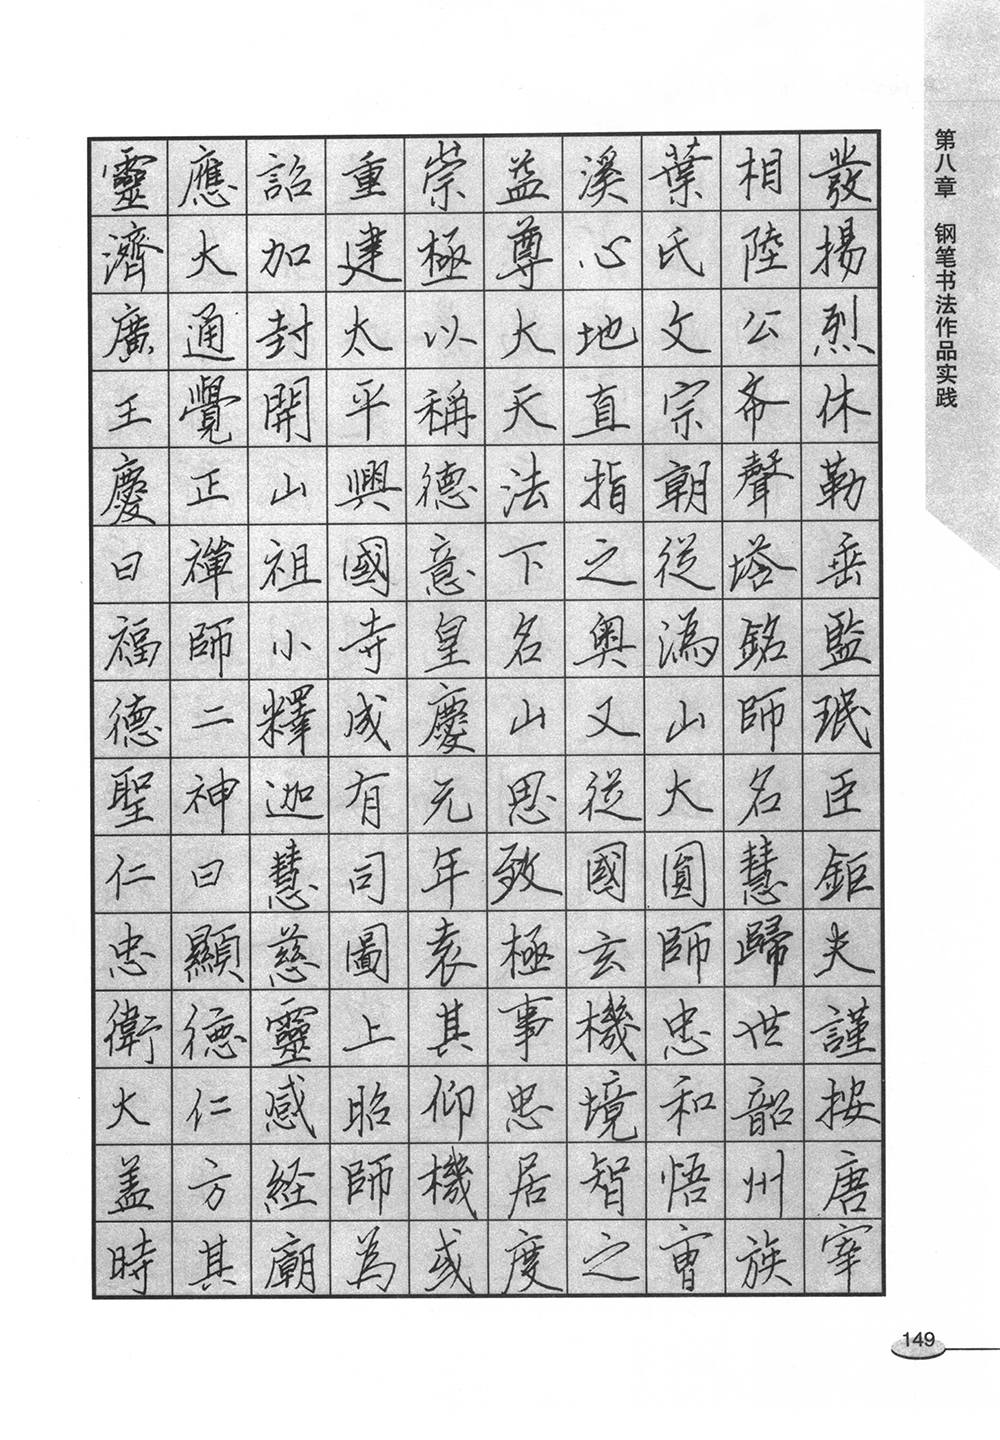 第八章 钢笔书法作品实践
發揚烈休勒垂監珉臣鉅夫謹按唐宰
相陸公希聲塔銘師名慧歸世韶州族
葉氏文宗朝從溈山大圓師忠和悟曹
溪心地直指之奧又從國玄機境智之
益尊大天法下名山思致極事忠居度
崇極以稱德意皇慶元年袁其仰機或
重建太平興國寺成有司圖上昭師為
詔加封開山祖小釋迦慧慈靈感経廟
應大通覺正禪師二神曰顯德仁方其
靈濟廣王慶曰福德聖仁忠衛大盖時
149